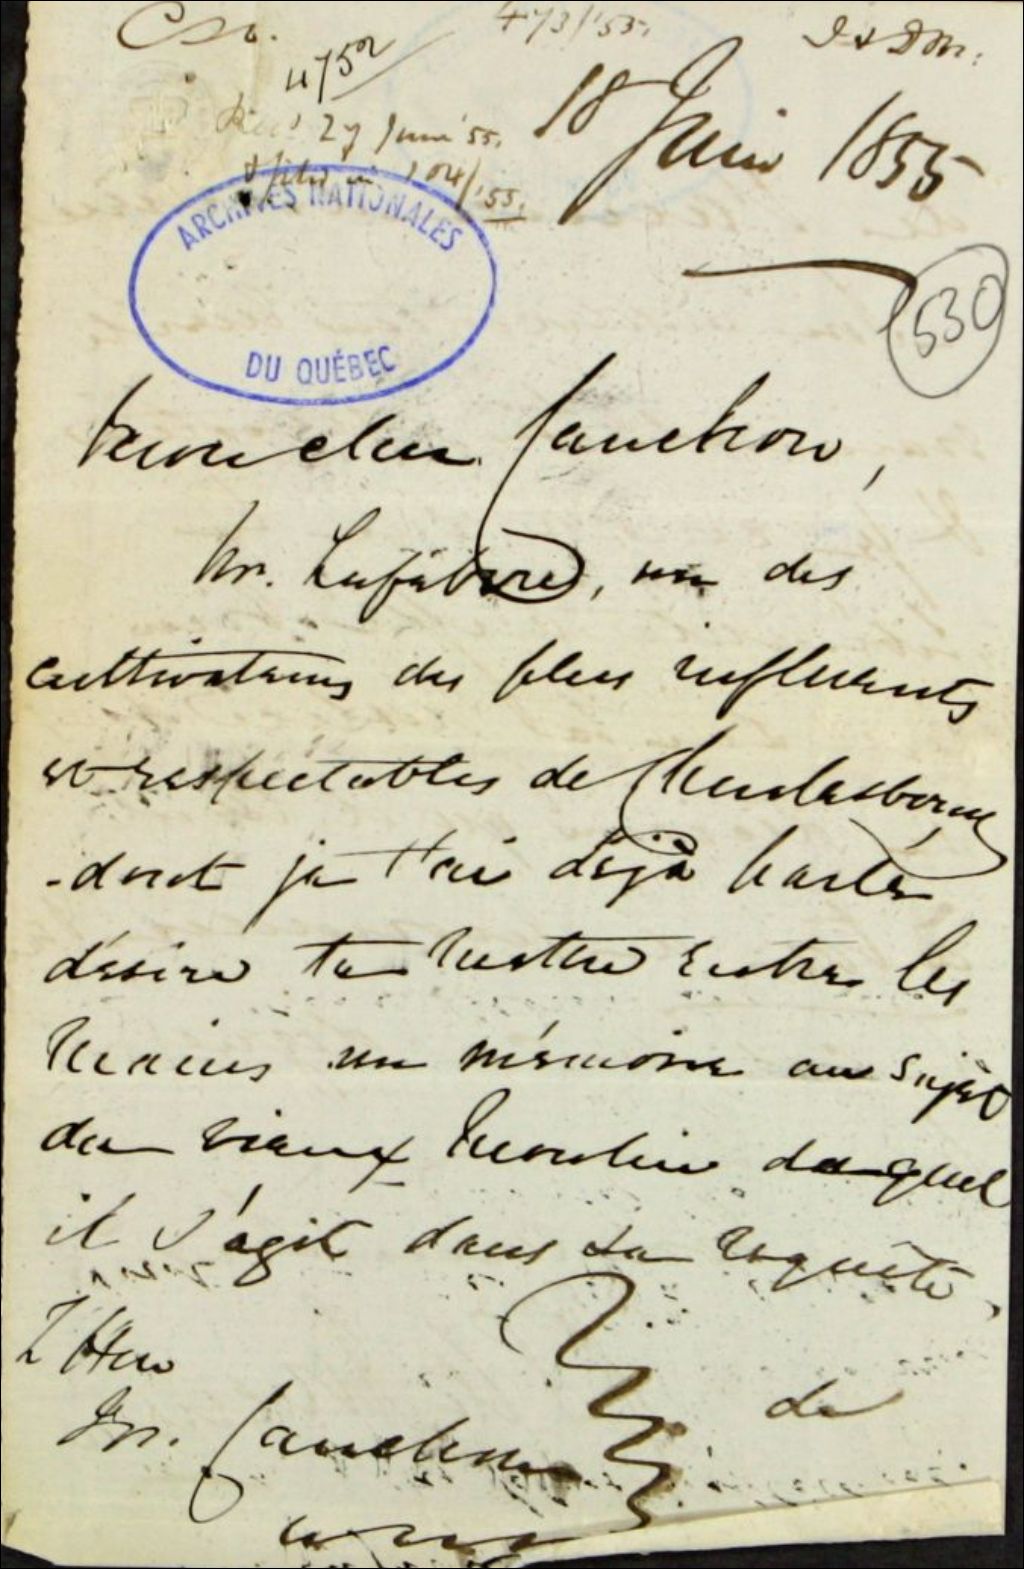 473/'55.
4752
Rec'd 27 June '55.
18 Juin 1855
ARCHIVES NATIONALES
DU QUÉBEC
530
Mon cher Cauchon,
Mr. Lefebvre, un des
cultivateurs des plus influents
et respectables de Charlesbourg
dont je t'ai déjà parlé
désire te mettre entre les
mains un mémoire au sujet
du vieux moulin duquel
il s'agit dans sa requête,
L'Hon
Mr. Cauchon
de